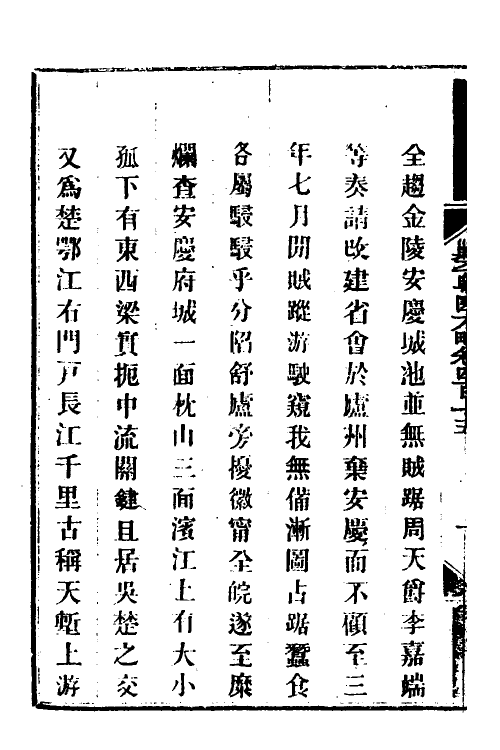 全趨金陵安慶城池並無賊踞周天爵李嘉端
等奏請改建省會於廬州棄安慶而不顧至三
年七月間賊蹤游駛窺我無備漸圖占踞蠶食
各屬駸駸乎分陷舒廬旁擾徽甯全皖遂至糜
爛查安慶府城一面枕山三面濱江上有大小
孤下有東西梁實扼中流關鍵且居吳楚之交
又爲楚鄂江右門戸長江千里古稱天塹上游